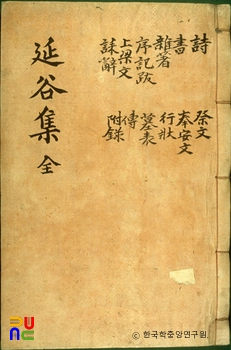 延谷集 全
詩
書
雜著
序記跋
上梁文
誄辭
祭文
奉安文
行狀
墓表
傳
附錄
ⓒ 한국학중앙연구원